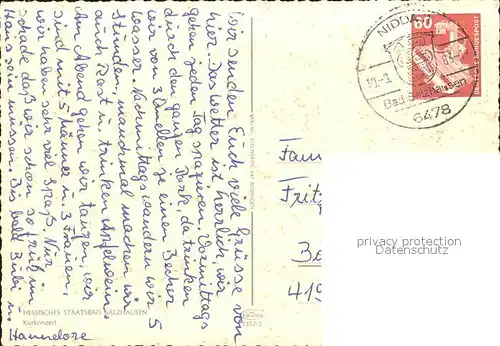 Wir senden Euch viele Grüsse von
hier. Das Wetter ist herrlich, wir
gehen jeden Tag spazieren. Vormittags
durch den ganzen Park, da trinken
wir von 3 Quellen je einen Becher
Wasser. Nachmittags wandern wir 5
Stunden, manchmal machen wir
auch Rast u. trinken Apfelwein.
Am Abend gehen wir tanzen, wir
sind mit 5 Männer u. 3 Frauen,
wir haben sehr viel Spaß. Nur
Schade daß wir schon so früh im
Haus sein müssen. Bis bald Bubi u.
Hannelore
HESSISCHES STAATSBAD SALZHAUSEN
Kurkonzert
NIDDA
Bad Salzhausen
6478
60
DEUTSCHE BUNDESPOST
Fam
Fritz
419
privacy protection
watermark